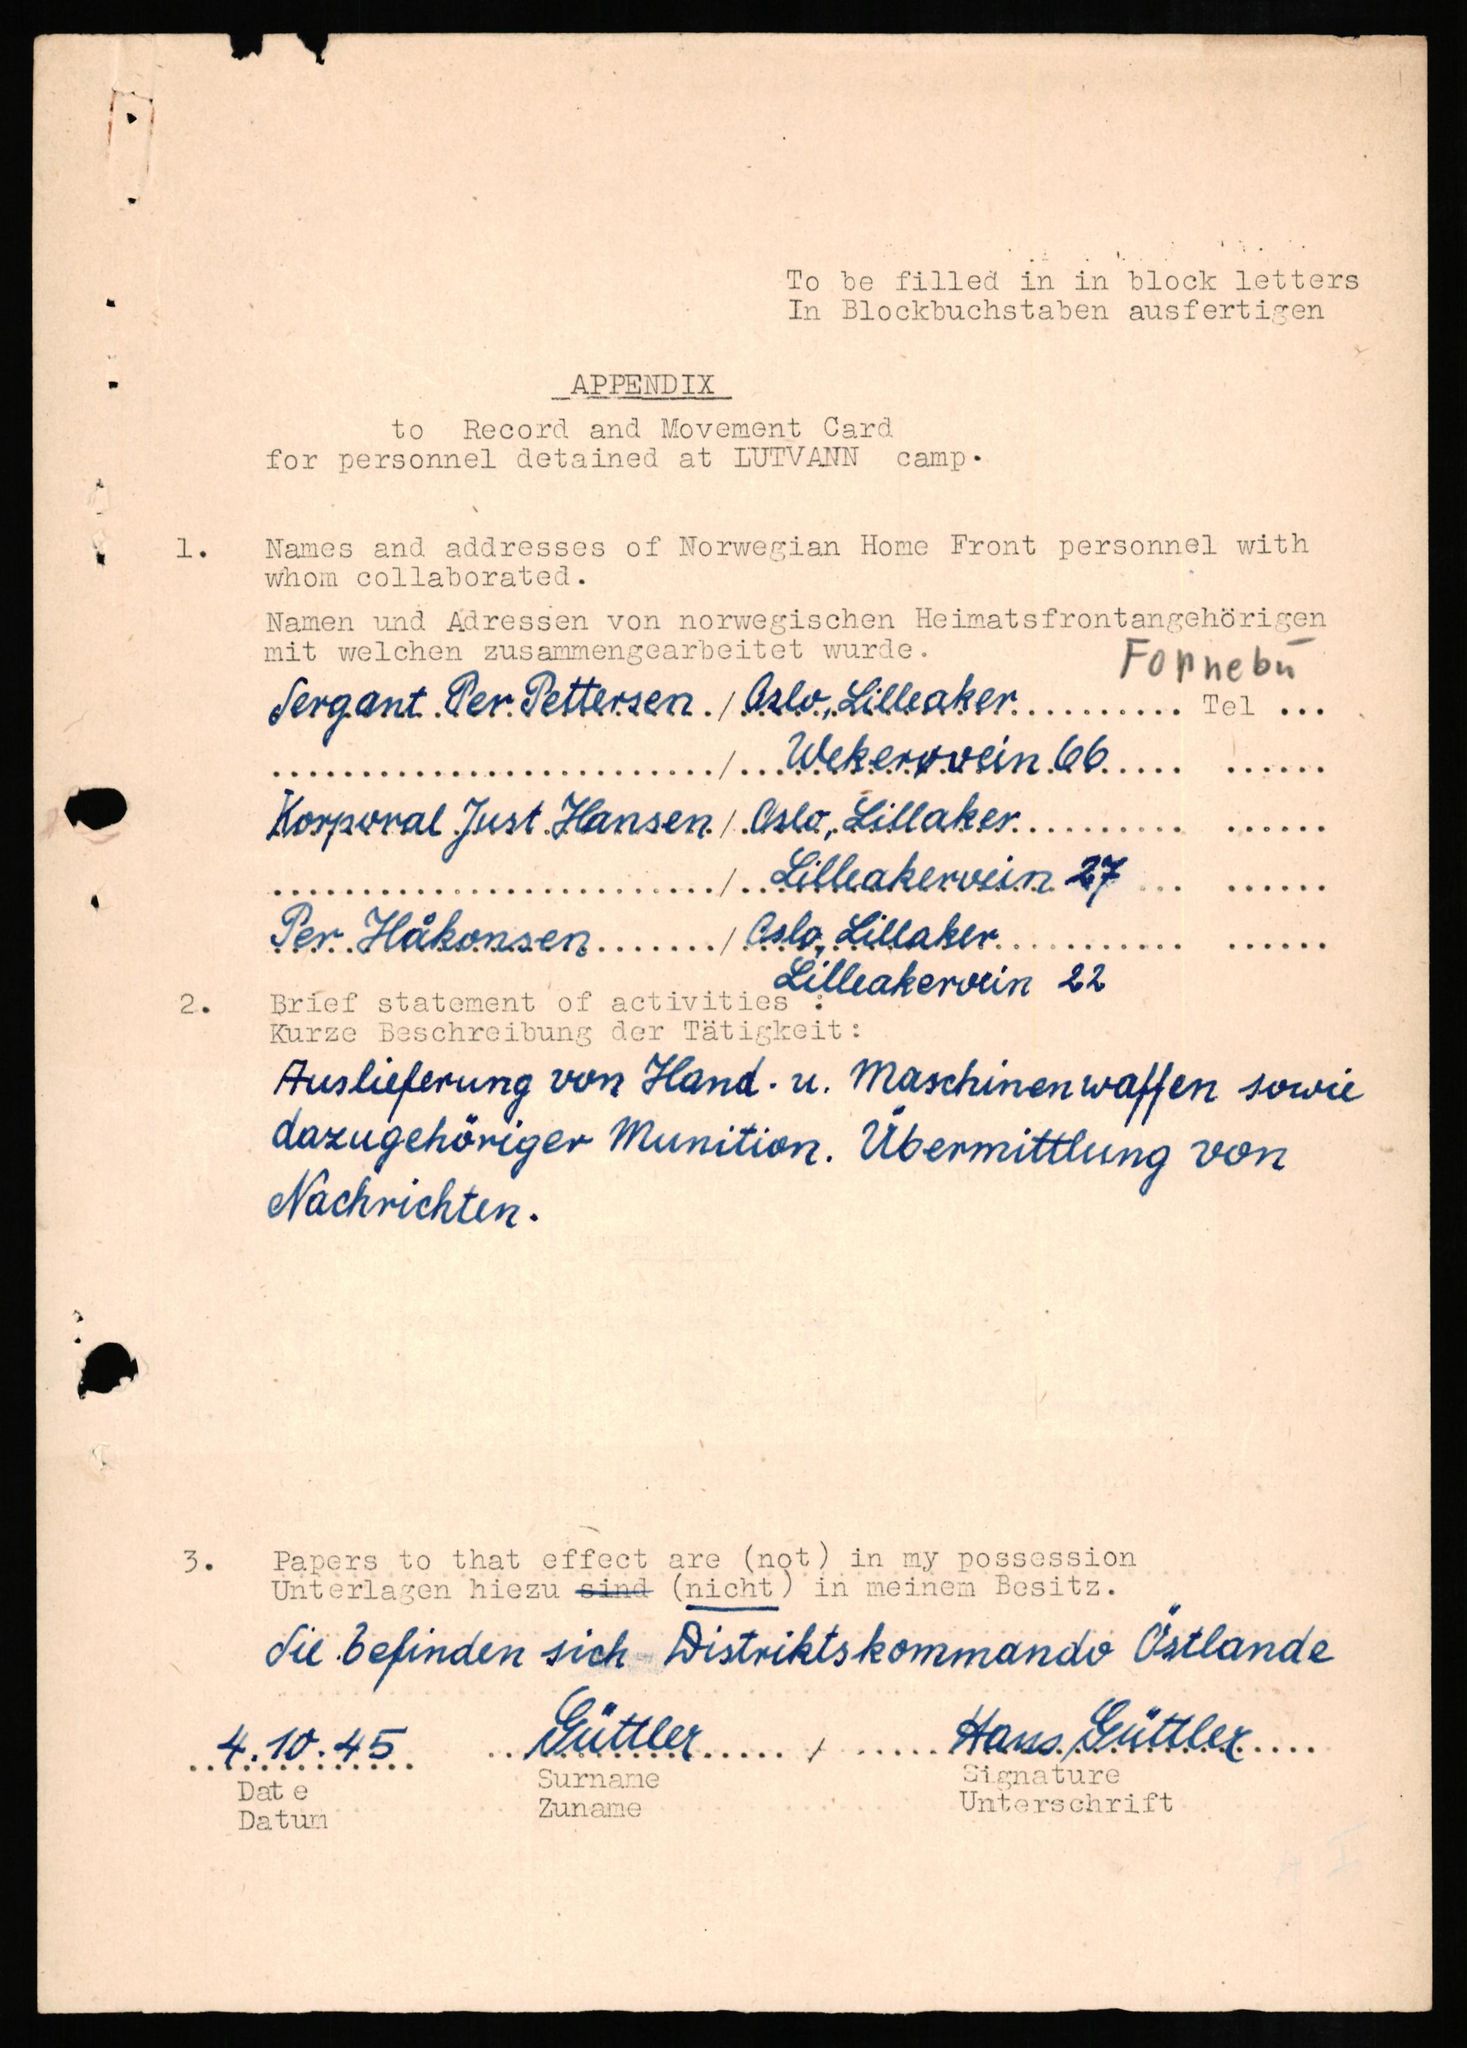 To be filled in in block letters
In Blockbuchstaben ausfertigen
APPENDIX
to Record and Movement Card
for personnel detained at LUTVANN camp.
1. Names and addresses of Norwegian Home Front personnel with
whom collaborated.
Namen und Adressen von norwegischen Heimatsfrontangehörigen
mit welchen zusammengearbeitet wurde.
Fornebu
Sergant Per Pettersen / Oslo, Lilleaker Tel ...
/ Wekerovein 66
Korporal Just Hansen / Oslo, Lillaker
/ Lilleakervein 27
Per Håkonsen / Oslo, Lillaker
Lilleakervein 22
2. Brief statement of activities :
Kurze Beschreibung der Tätigkeit:
Auslieferung von Hand- u. Maschinenwaffen sowie
dazugehöriger Munition. Übermittlung von
Nachrichten.
3. Papers to that effect are (not) in my possession
Unterlagen hiezu sind (nicht) in meinem Besitz.
Sie befinden sich Distriktskommando Östlande
4.10.45 Güttler / Hans Güttler
Date Surname Signature
Datum Zuname Unterschrift